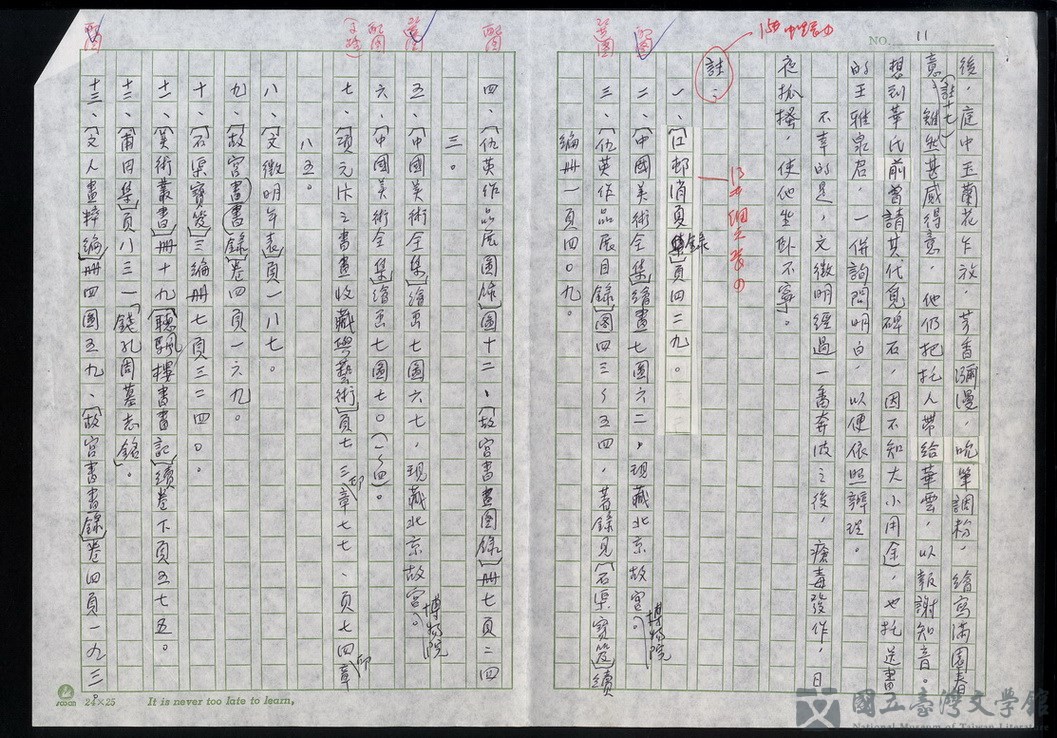 NO. 11
後，庭中玉蘭花乍放，芳香瀰漫，吮筆調粉，繪寫滿園春
意（註十七）雖然甚感得意，他仍把托人帶給華雲，以報謝知音。
想到華氏前曾請其代覓碑石，因不知大小用途，也托送畫
的王雅泉君，一併詢問明白，以便依照辦理。
不幸的是，文徵明經過一番奔波之後，瘡毒發作，日
夜抓搔，使他坐卧不寧。
註：
一、「口邨消夏錄」頁四二九。
二、「中國美術全集」繪畫七圖六二，現藏北京故宮博物院。
三、「仇英作品展目錄」圖四三～五四，著錄見「石渠寶笈」續
編冊一頁四〇九。
四、「仇英作品展圖錄」圖十二、「故宮書畫圖錄」冊七頁二四
三。
五、「中國美術全集」繪画七圖六七，現藏北京故宮博物院。
六、「中國美術全集」繪画七圖七〇（一～四）。
七、「項元汴之書畫收藏與藝術」頁七三印章七七、頁七四印章
八五。
八、「文徵明年表」頁一八七。
九、「故宮書畫錄」卷四頁一六九。
十、「石渠寶笈」三編冊七頁三二四〇。
十一、「美術叢書」冊十九「聽颿樓書畫記」續卷下頁五七五。
十二、「甫田集」頁八三一「錢孔周墓志銘」。
十三、「文人畫粹編」冊四圖五九、「故宮書畫錄」卷四頁一九三。
配圖
選圖
配圖
選圖
配圖
配圖
24×25
It is never too late to learn,
國立臺灣文學館
National Museum of Taiwan Literature